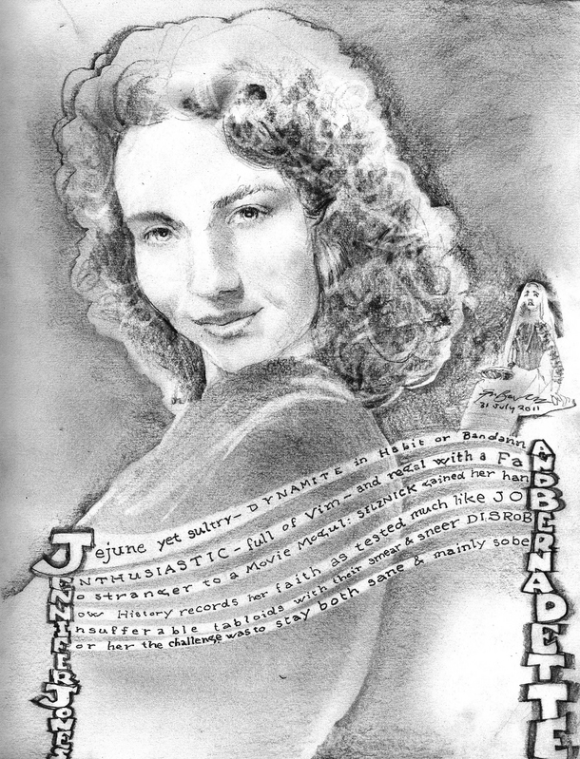 Jejune yet sultry–DYNAMITE in Habit or Bandann
NTHUSIASTIC–full of Vim–and regal with a Fa
o stranger to a Movie Mogul: SELZNICK gained her han
ow History records her faith as tested much like JO
nsufferable tabloids with their smear & sneer DISROB
or her the challenge was to stay both sane & mainly sobe
JENNIFER JONES
ANDBERNADETTE
31 July 2011